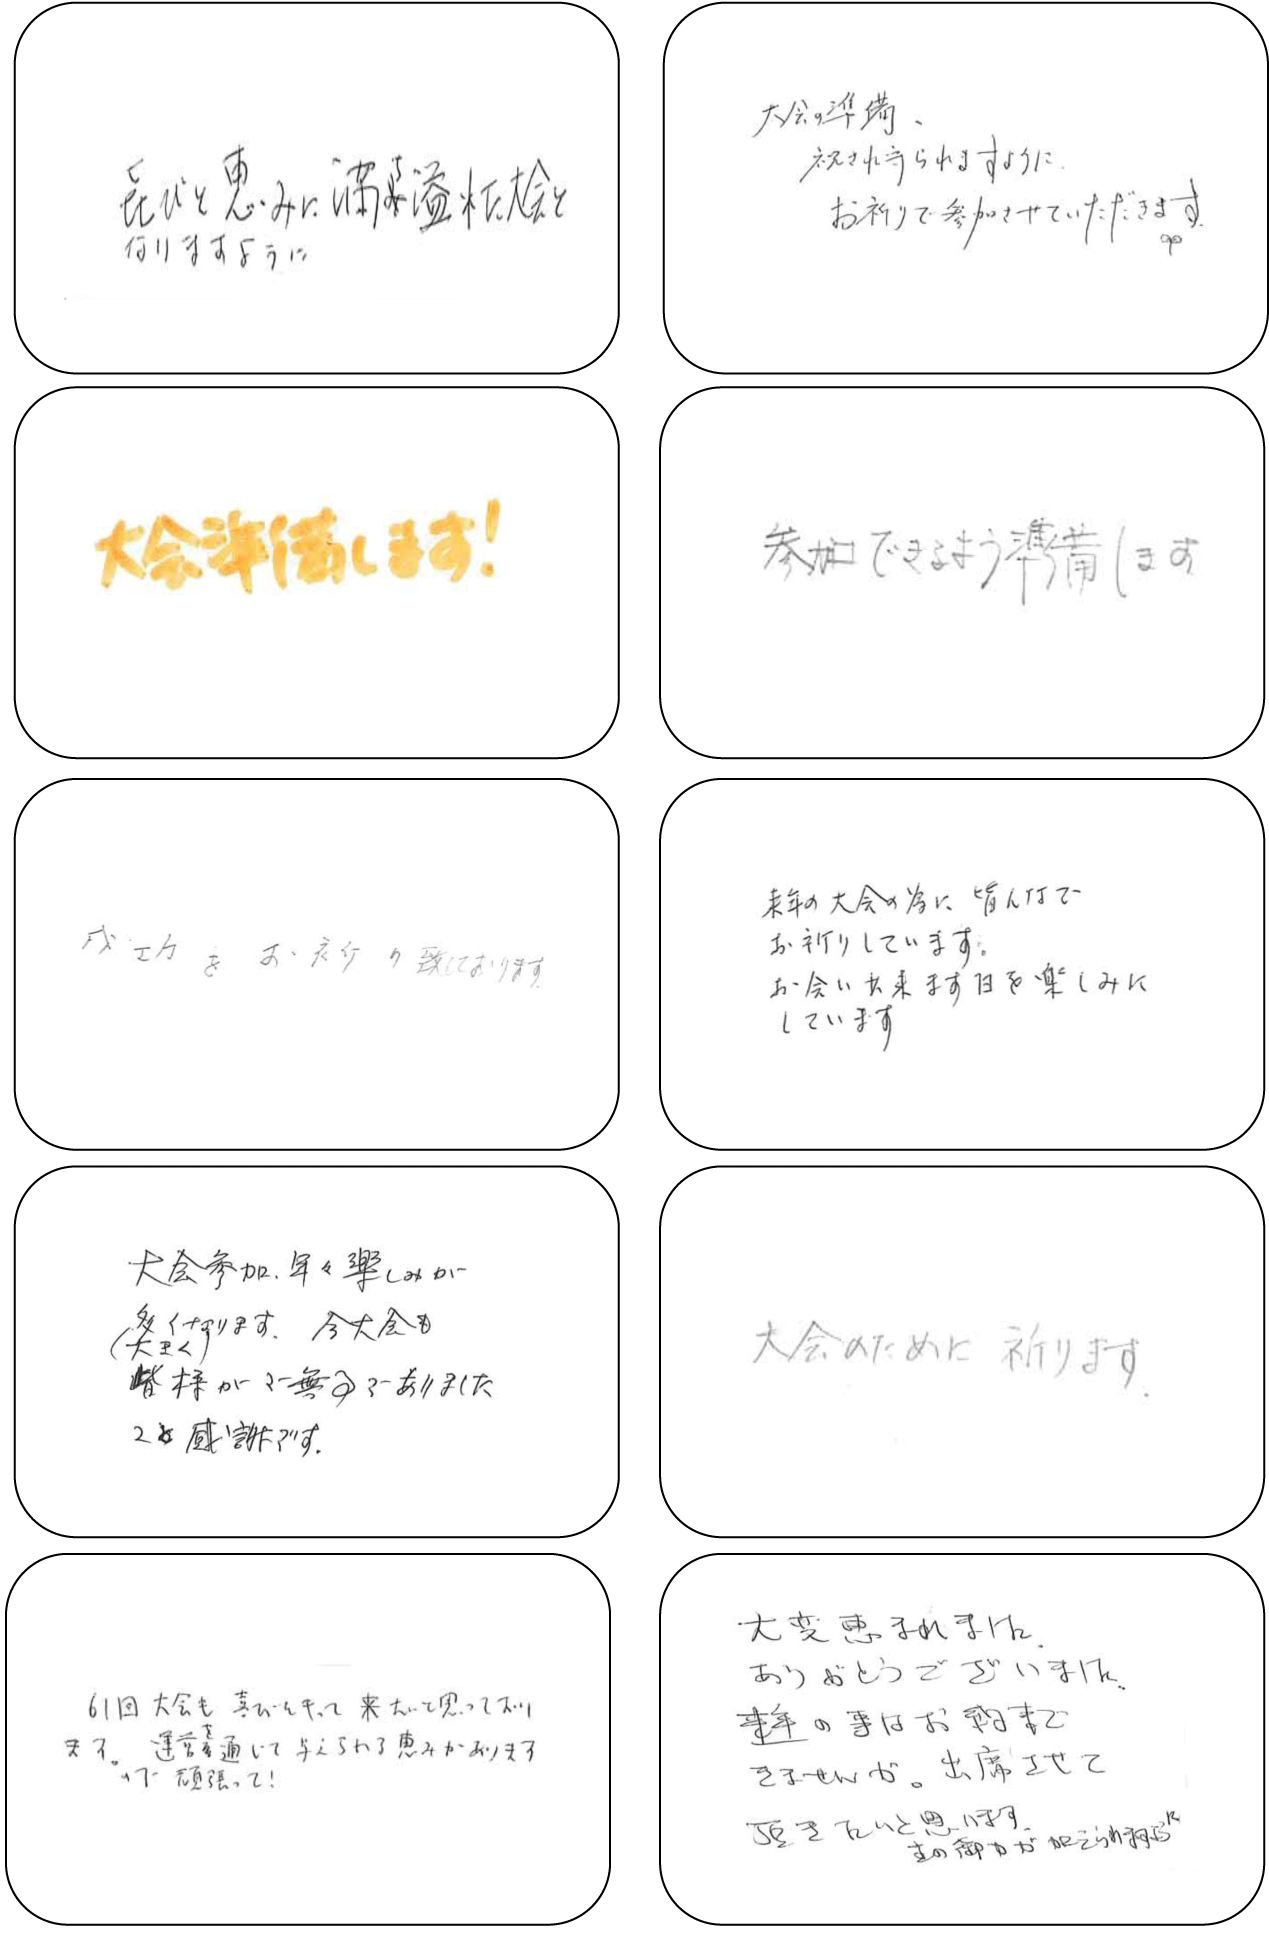 喜びと恵みに満ち溢れた大会と
なりますように
大会の準備、
祝され守られますように。
お祈りで参加させていただきます。
大会準備します!
参加できるよう準備します
成功をお祈り致しております。
来年の大会の為に皆んなで
お祈りしています。
お会い出来ます日を楽しみに
しています
大会参加、年々楽しみが
多くなります。今大会も
(大きく)
皆様がご無事でありました
こと感謝です。
大会のために祈ります。
61回大会も喜びをもって来たいと思っており
ます。運営を通じて与えられる恵みがあります
ので頑張って!
大変恵まれました。
ありがとうございました。
来年の事はお約束で
きませんが。出席させて
頂きたいと思います。
主の御力が加えられますように